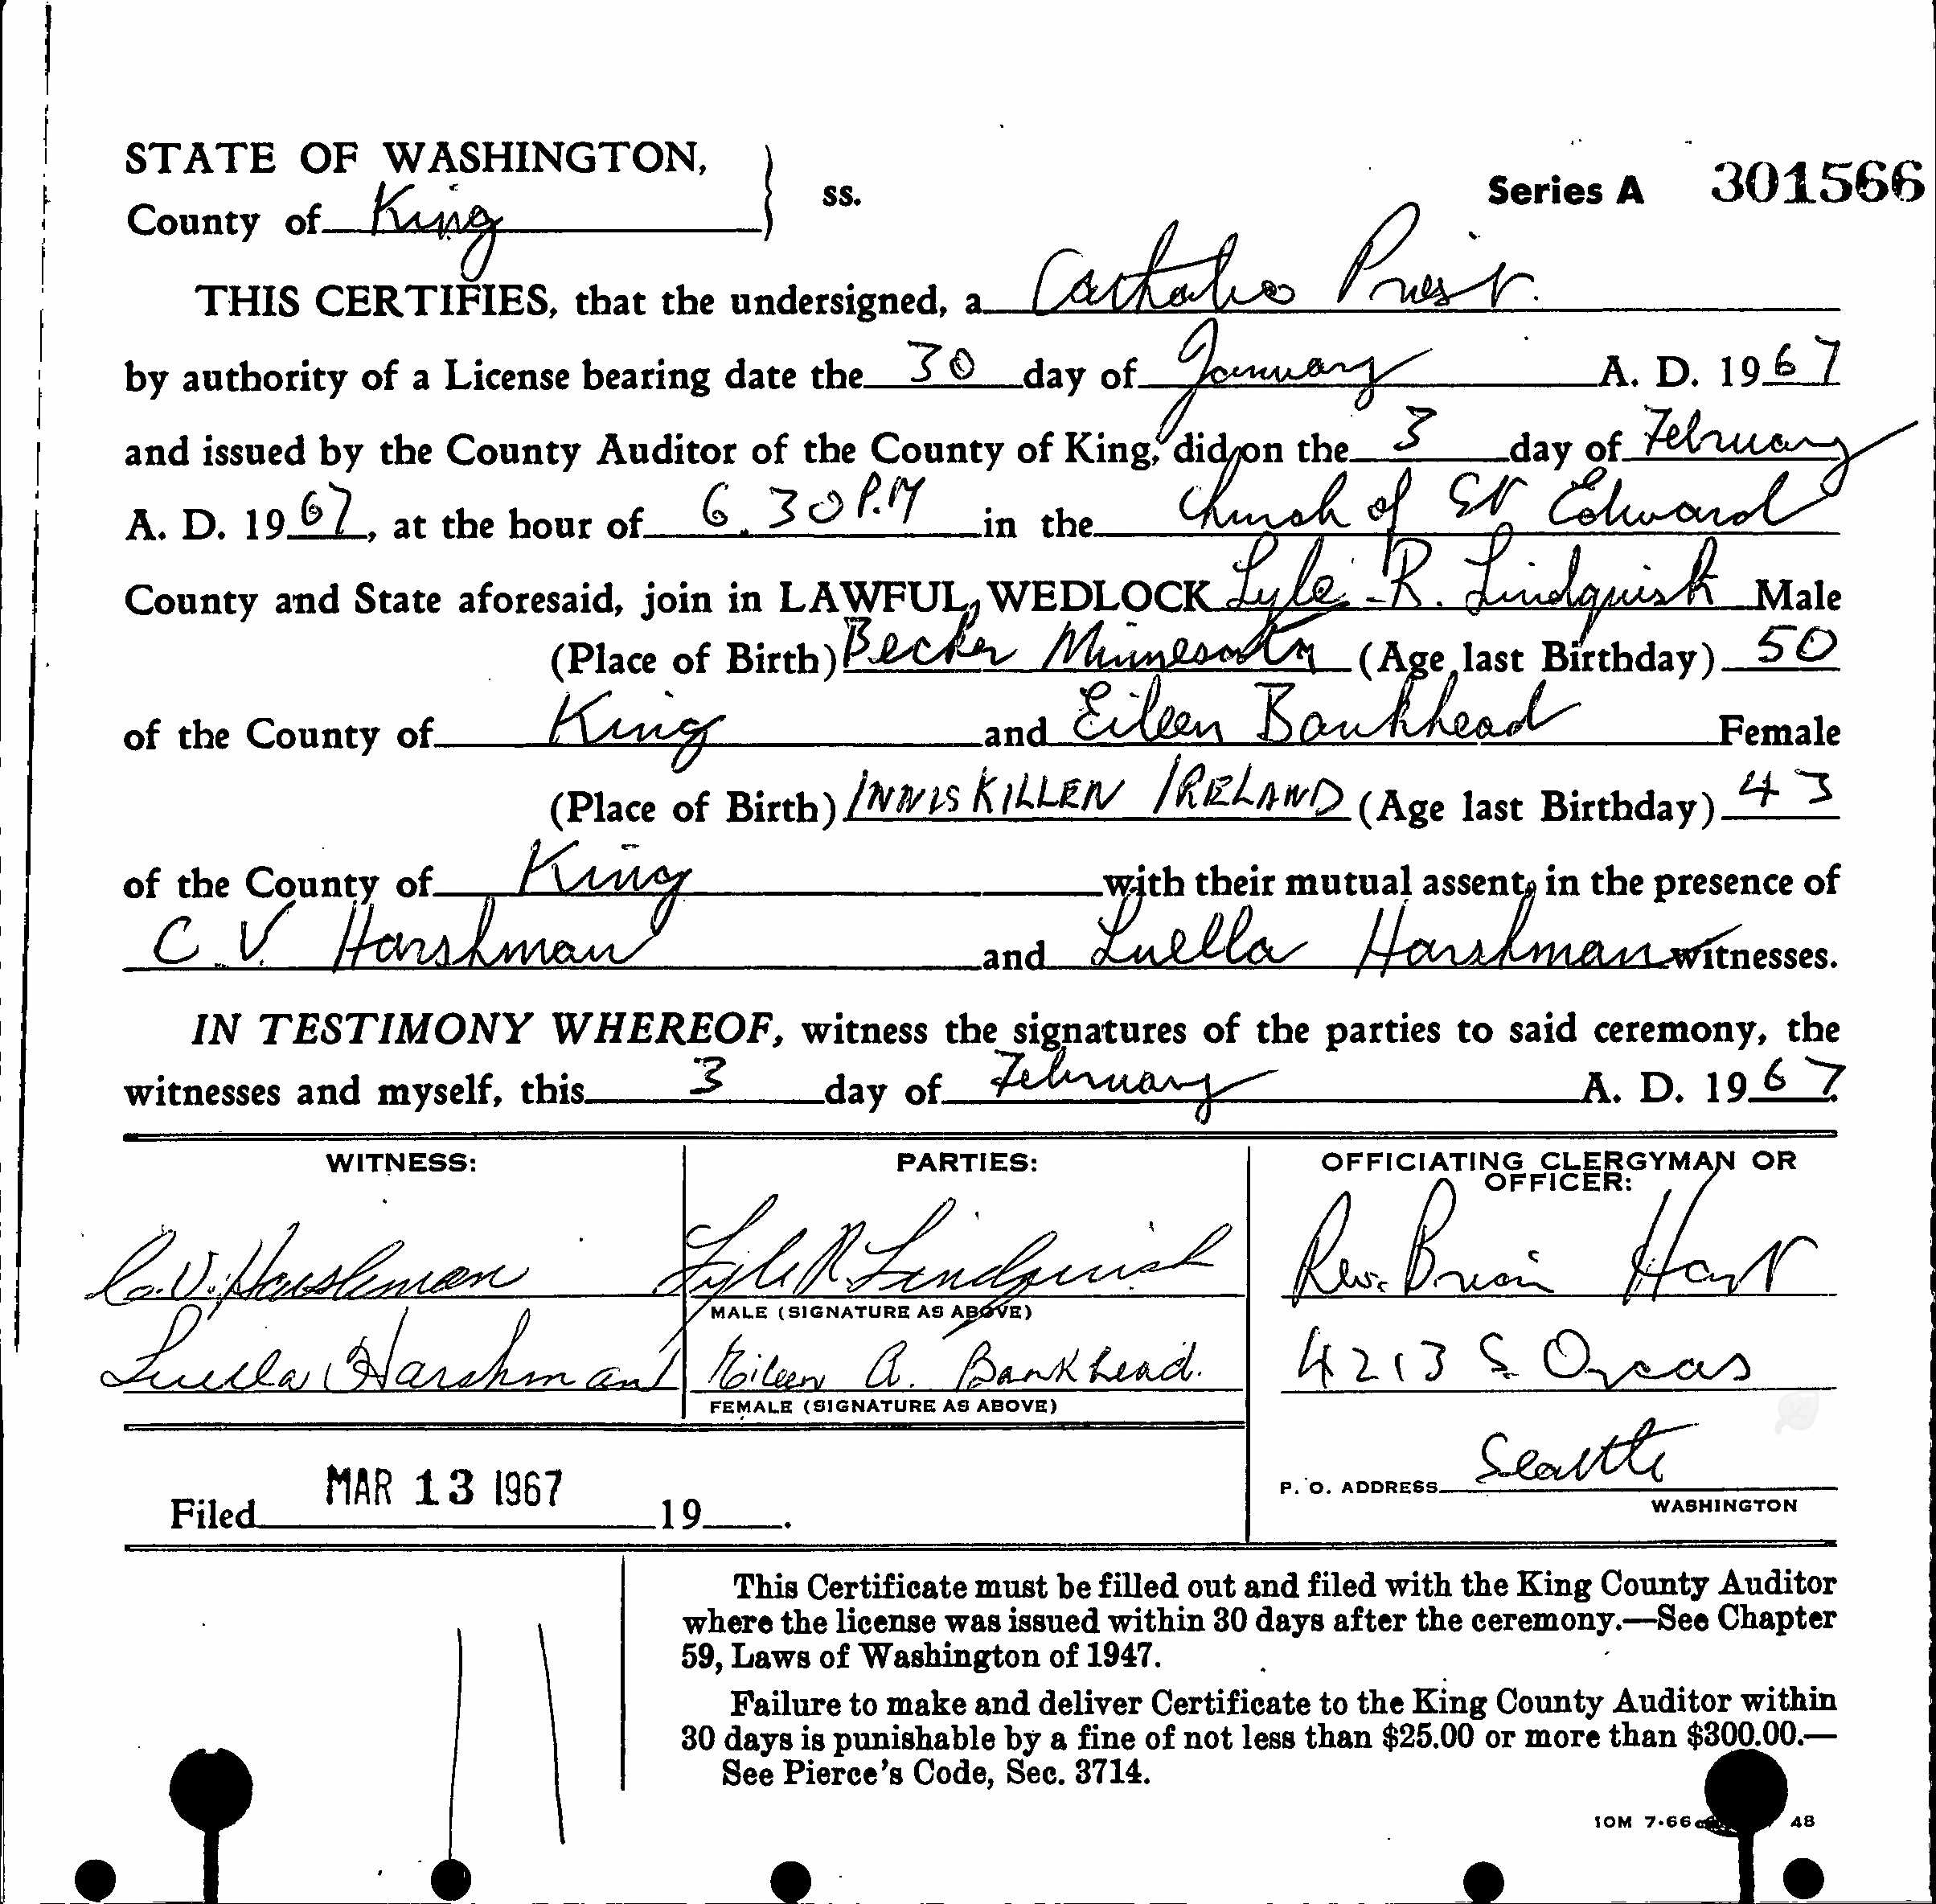 STATE OF WASHINGTON,
County of King
ss.
Series A 301566
THIS CERTIFIES, that the undersigned, a Catholic Priest.
by authority of a License bearing date the 30 day of January A. D. 1967
and issued by the County Auditor of the County of King, did on the 3 day of February
A. D. 1967, at the hour of 6.30 P.M in the Church of St Edward
County and State aforesaid, join in LAWFUL WEDLOCK Lyle R. Lindquist Male
(Place of Birth) Becker Minnesota (Age last Birthday) 50
of the County of King and Eileen Bankhead Female
(Place of Birth) INNISKILLEN IRELAND (Age last Birthday) 43
of the County of King with their mutual assent, in the presence of
C. V. Harshman and Luella Harshman witnesses.
IN TESTIMONY WHEREOF, witness the signatures of the parties to said ceremony, the
witnesses and myself, this 3 day of February A. D. 1967.
WITNESS:
C.V. Harshman
Luella Harshman
PARTIES:
Lyle R. Lindquist
MALE (SIGNATURE AS ABOVE)
Eileen A. Bankhead.
FEMALE (SIGNATURE AS ABOVE)
OFFICIATING CLERGYMAN OR
OFFICER:
Rev. Brian Hart
4213 S. Orcas
Seattle
P. O. ADDRESS
WASHINGTON
Filed MAR 13 1967 19 .
This Certificate must be filled out and filed with the King County Auditor
where the license was issued within 30 days after the ceremony.—See Chapter
59, Laws of Washington of 1947.
Failure to make and deliver Certificate to the King County Auditor within
30 days is punishable by a fine of not less than $25.00 or more than $300.00.—
See Pierce's Code, Sec. 3714.
10M 7-66 48